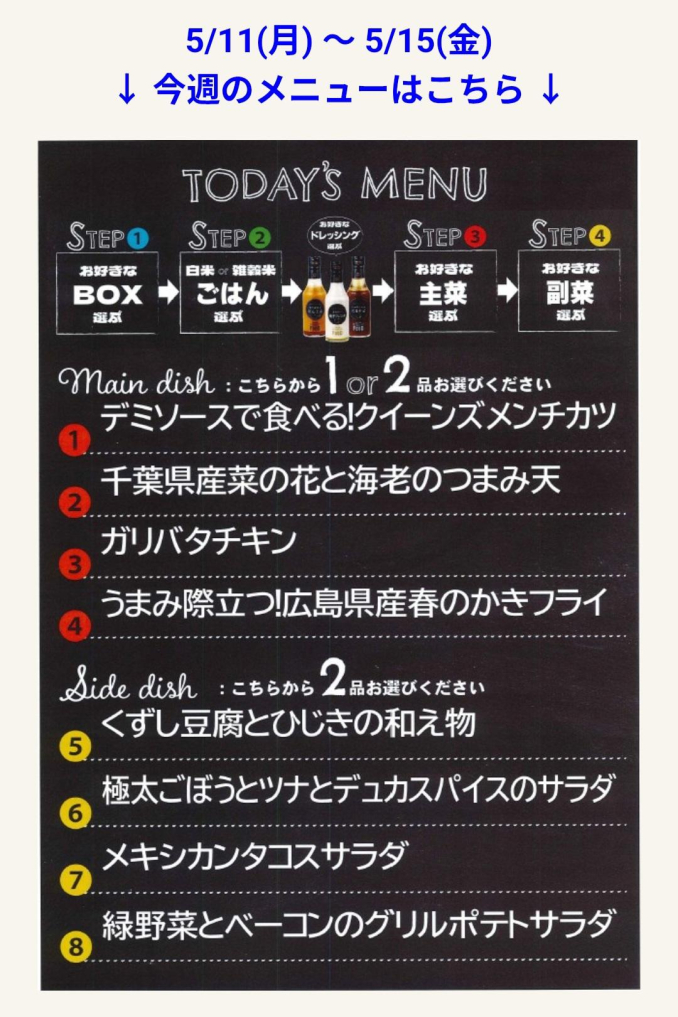 5/11(月) ～ 5/15(金)
↓ 今週のメニューはこちら ↓
TODAY'S MENU
STEP 1
お好きな
BOX
選ぶ
STEP 2
白米 or 雑穀米
ごはん
選ぶ
お好きな
ドレッシング
選ぶ
STEP 3
お好きな
主菜
選ぶ
STEP 4
お好きな
副菜
選ぶ
Main dish : こちらから 1 or 2 品お選びください
1 デミソースで食べる!クイーンズメンチカツ
2 千葉県産菜の花と海老のつまみ天
3 ガリバタチキン
4 うまみ際立つ!広島県産春のかきフライ
Side dish : こちらから 2 品お選びください
5 くずし豆腐とひじきの和え物
6 極太ごぼうとツナとデュカスパイスのサラダ
7 メキシカンタコスサラダ
8 緑野菜とベーコンのグリルポテトサラダ